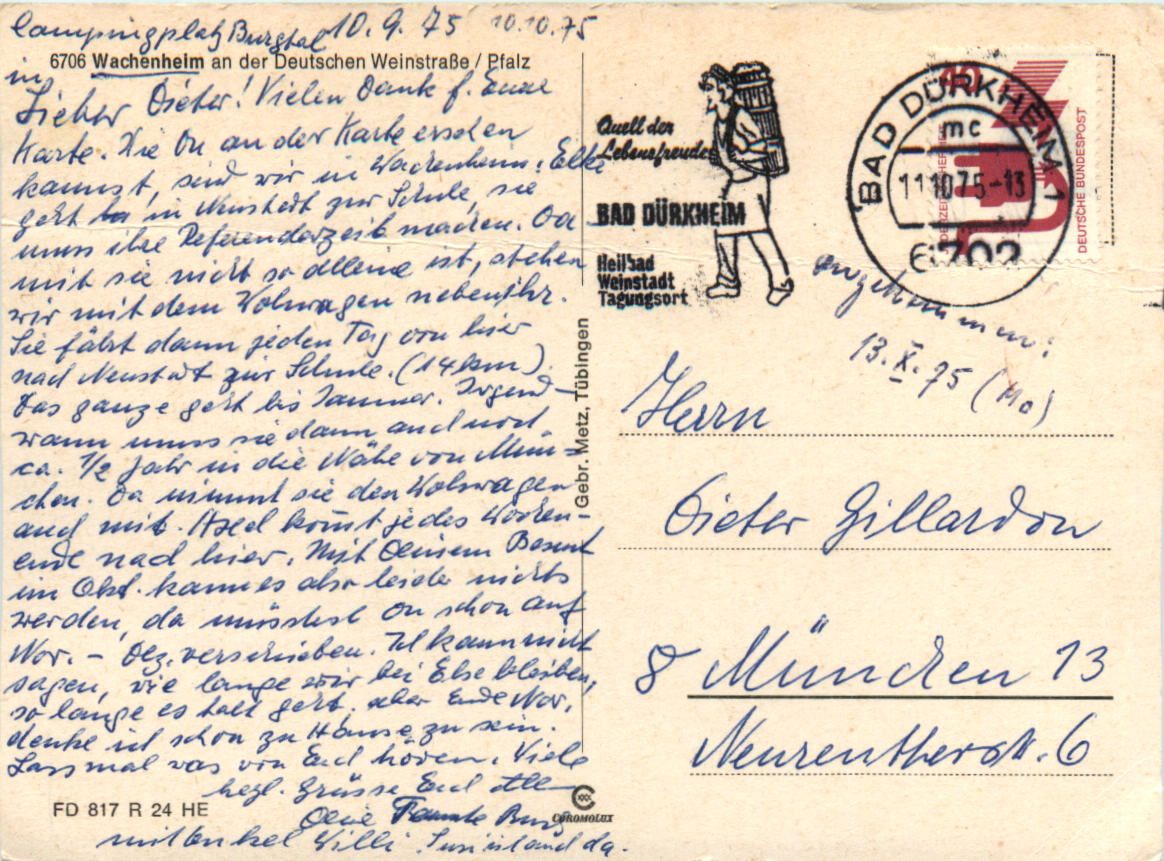 Campingplatz Burgtal 10.9.75 10.10.75
6706 Wachenheim an der Deutschen Weinstraße / Pfalz
in
Lieber Dieter! Vielen Dank f. Eure
Karte. Wie Du an der Karte ersehen
kannst, sind wir in Wachenheim. Elke
geht in Neustadt zur Schule, sie
muss ihre Referendarzeit machen. Da
mit sie nicht so alleine ist, stehen
wir mit dem Wohnwagen neben ihr.
Sie fährt dann jeden Tag von hier
nach Neustadt zur Schule. (14 km).
Das ganze geht bis Januar. Irgend-
wann muss sie dann auch noch
ca. 1/2 Jahr in die Nähe von Mün-
chen. Da nimmt sie den Wohnwagen
auch mit. Axel kommt jedes Wochen-
ende nach hier. Mit Deinem Besuch
im Okt. kann es also leider nichts
werden, da müsstest Du schon auf
Nov. - Dez. verschieben. Ich kann nicht
sagen, wie lange wir bei Elke bleiben,
so lange es halt geht. aber Ende Nov.
denke ich schon zu Hause zu sein.
Lass mal was von Euch hören. Viele
herzl. Grüsse Euch Allen
Deine Tante
mit Onkel Willi.
FD 817 R 24 HE
CHROMOLUX
Gebr. Metz, Tübingen
Quell der
Lebensfreude
BAD DÜRKHEIM
Heilbad
Weinstadt
Tagungsort
BAD DÜRKHEIM 1
mc
11.10.75-13
6702
40
DEUTSCHE BUNDESPOST
13. X. 75 (Mo)
Herrn
Dieter Gillardon
8 München 13
Neureutherstr. 6